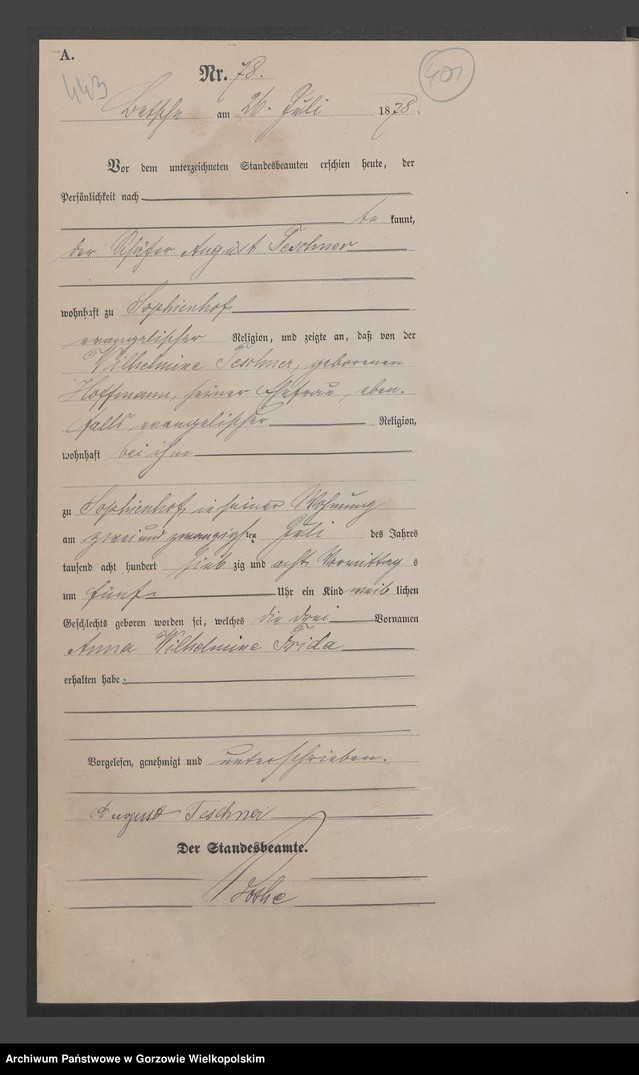 A.
Nr. 78.
443
401
Betsche am 26. Juli 1878.
Vor dem unterzeichneten Standesbeamten erschien heute, der
Persönlichkeit nach
be kannt,
der Schäfer August Teschner
wohnhaft zu Sophienhof
evangelischer Religion, und zeigte an, daß von der
Wilhelmine Teschner, geborenen
Hoffmann, seiner Ehefrau, eben-
falls evangelischer Religion,
wohnhaft bei ihm
zu Sophienhof, in seiner Wohnung
am zwei und zwanzigsten Juli des Jahres
tausend acht hundert sieb zig und acht Vormittag s
um fünf Uhr ein Kind weib lichen
Geschlechts geboren worden sei, welches die drei Vornamen
Anna Wilhelmine Frida
erhalten habe.
Vorgelesen, genehmigt und unterschrieben.
August Teschner
Der Standesbeamte.
Archiwum Państwowe w Gorzowie Wielkopolskim